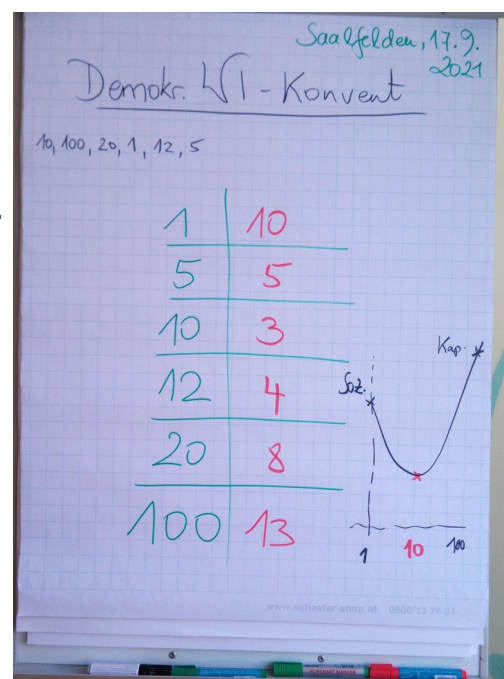 Saalfelden, 17.9.
2021
Demokr. WI-Konvent
10, 100, 20, 1, 12, 5
1 10
5 5
10 3
12 4
20 8
100 13
Kap.
Soz.
1 10 100
www.schaefer-shop.at 0800/13 76 03